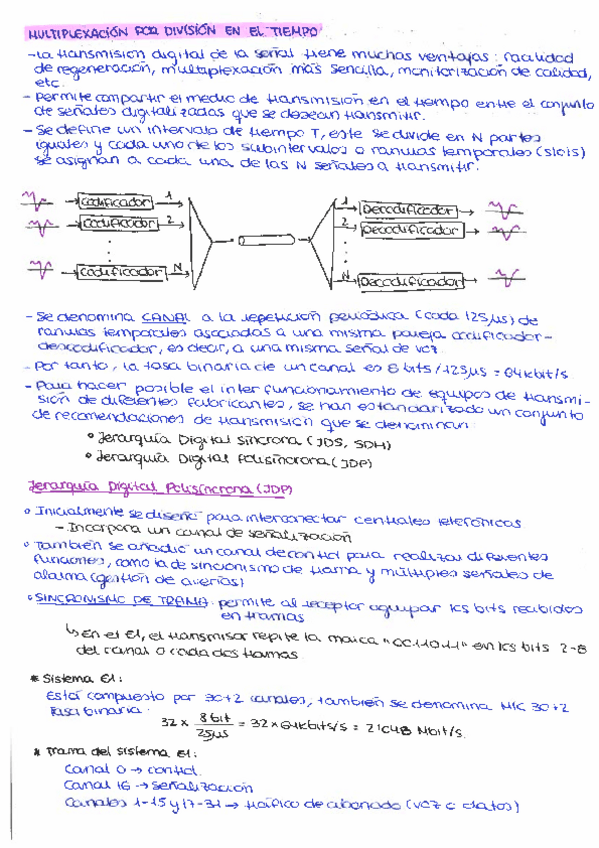 MULTIPLEXACIÓN POR DIVISIÓN EN EL TIEMPO
- La transmisión digital de la señal tiene muchas ventajas: facilidad
de regeneración, multiplexación más sencilla, monitorización de calidad,
etc.
- Permite compartir el medio de transmisión en el tiempo entre el conjunto
de señales digitalizadas que se desean transmitir.
- Se define un intervalo de tiempo T, este se divide en N partes
iguales y cada uno de los subintervalos o ranuras temporales (slots)
se asignan a cada una de las N señales a transmitir.
Codificador 1 1 Decodificador
Codificador 2 2 Decodificador
Codificador N N Decodificador
- Se denomina CANAL a la repetición periódica (cada 125 µs) de
ranuras temporales asociadas a una misma pareja codificador-
descodificador, es decir, a una misma señal de voz.
- Por tanto, la tasa binaria de un canal es 8 bits / 125 µs = 64 kbit/s
- Para hacer posible el interfuncionamiento de equipos de transmi-
sión de diferentes fabricantes, se han estandarizado un conjunto
de recomendaciones de transmisión que se denominan:
• Jerarquía Digital Síncrona (JDS, SDH)
• Jerarquía Digital Polisíncrona (JDP)
Jerarquía Digital Polisíncrona (JDP)
• Inicialmente se diseñó para interconectar centrales telefónicas
- Incorpora un canal de señalización
• También se añadió un canal de control para realizar diferentes
funciones, como la de sincronismo de trama y múltiples señales de
alarma (gestión de averías)
• SINCRONISMO DE TRAMA: permite al receptor agrupar los bits recibidos
en tramas
↳ En el E1, el transmisor repite la marca "0011011" en los bits 2-8
del canal 0 cada dos tramas
* Sistema E1:
Está compuesto por 30+2 canales, también se denomina MIC 30+2
Tasa binaria:
32 × 8 bit / 25 µs = 32 × 64 kbits/s = 2'048 Mbit/s.
* Trama del sistema E1:
Canal 0 → control.
Canal 16 → Señalización
Canales 1-15 y 17-31 → tráfico de abonado (voz o datos)